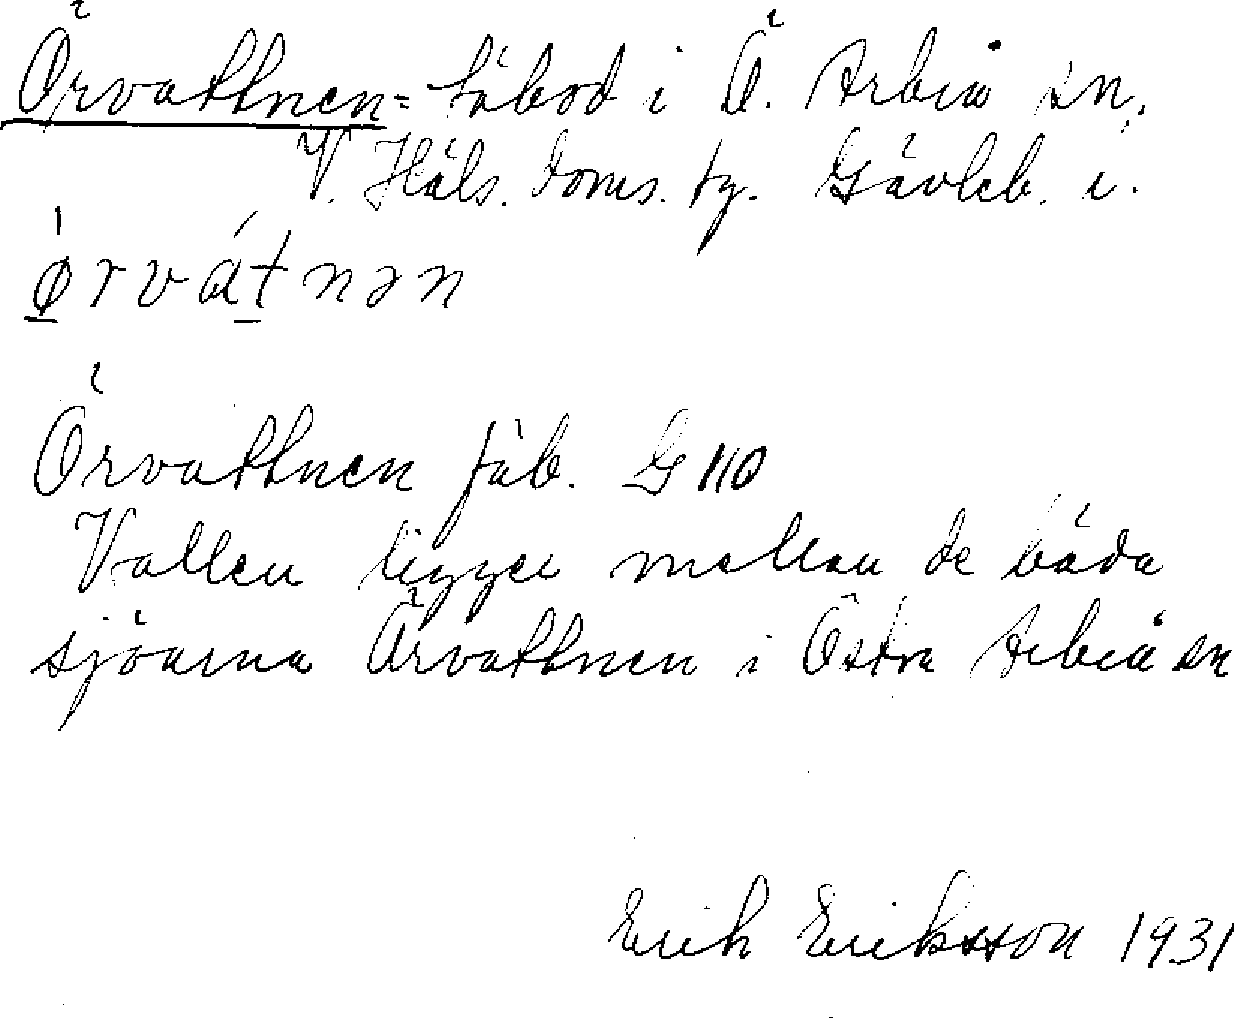 Örvattnen = fäbod i Ö. Arbrå sn.
V. Häls. doms. tg. Gävleb. l.
ö́rvátnən
Örvattnen fäb. G 110
Vallen ligger mellan de båda
sjöarna Örvattnen i Östra Arbrå sn
Erik Eriksson 1931